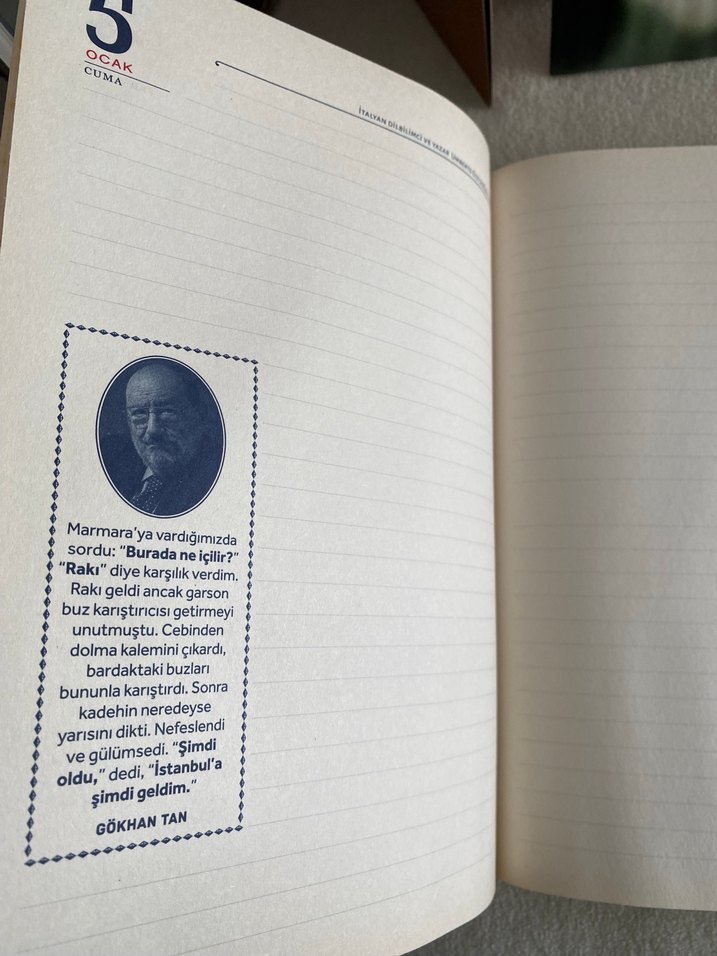 5
OCAK
CUMA
İTALYAN DİLBİLİMCİ VE YAZAR UMBERTO
Marmara'ya vardığımızda
sordu: "Burada ne içilir?"
"Rakı" diye karşılık verdim.
Rakı geldi ancak garson
buz karıştırıcısı getirmeyi
unutmuştu. Cebinden
dolma kalemini çıkardı,
bardaktaki buzları
bununla karıştırdı. Sonra
kadehin neredeyse
yarısını dikti. Nefeslendi
ve gülümsedi. "Şimdi
oldu," dedi, "İstanbul'a
şimdi geldim."
GÖKHAN TAN